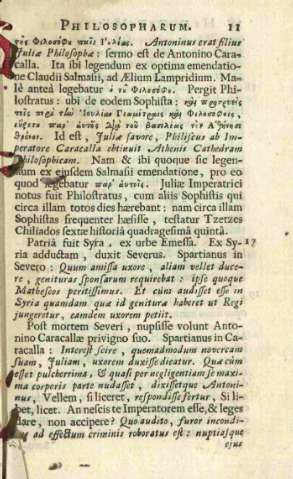 PHILOSOPHARUM. 11
τῆς Φιλοσόφου παῖς Ἰουλίας. Antoninus erat filius
Juliæ Philosophæ: sermo est de Antonino Cara-
calla. Ita ibi legendum ex optima emendatio-
ne Claudii Salmasii, ad Ælium Lampridium. Ma-
lè anteà legebatur ὁ τοῦ Φιλοσόφου. Pergit Phi-
lostratus: ubi de eodem Sophista: καὶ
τῆς περὶ τὴν Ἰουλίαν Γεωμέτραις καὶ Φιλοσόφοις,
εὕρετο παρ' αὐτῆς διὰ τοῦ βασιλέως τὸν Ἀθήνησι
θρόνον. Id est, Juliæ favore, Philiscus ab Im-
peratore Caracalla obtinuit Athenis Cathedram
Philosophicam. Nam & ibi quoque sic legen-
dum ex ejusdem Salmasii emendatione, pro eo
quod legebatur παρ' αὐτοῖς. Juliæ Imperatrici
notus fuit Philostratus, cum aliis Sophistis qui
circa illam totos dies hærebant: nam circa illam
Sophistas frequenter hæsisse, testatur Tzetzes
Chiliados sextæ historiâ quadragesimâ quintâ.
Patriâ fuit Syra, ex urbe Emessa. Ex Sy-
ria adductam, duxit Severus. Spartianus in
Severo: Quum amissa uxore, aliam vellet duce-
re, genituras sponsarum requirebat: ipse quoque
Matheseos peritissimus. Et cum audisset esse in
Syria quamdam quæ id genituræ haberet ut Regi
jungeretur, eamdem uxorem petiit.
Post mortem Severi, nupsisse volunt Anto-
nino Caracallæ privigno suo. Spartianus in Ca-
racalla: Interest scire, quemadmodum novercam
suam, Juliam, uxorem duxisse dicatur. Quæ cùm
esset pulcherrima, & quasi per negligentiam se maxi-
ma corporis parte nudasset, dixissetque Antoni-
nus, Vellem, si liceret, respondisse fertur, Si li-
bet, licet. An nescis te Imperatorem esse, & leges
dare, non accipere? Quo audito, furor incondi-
tus ad effectum criminis roboratus est: nuptiasque
ejus